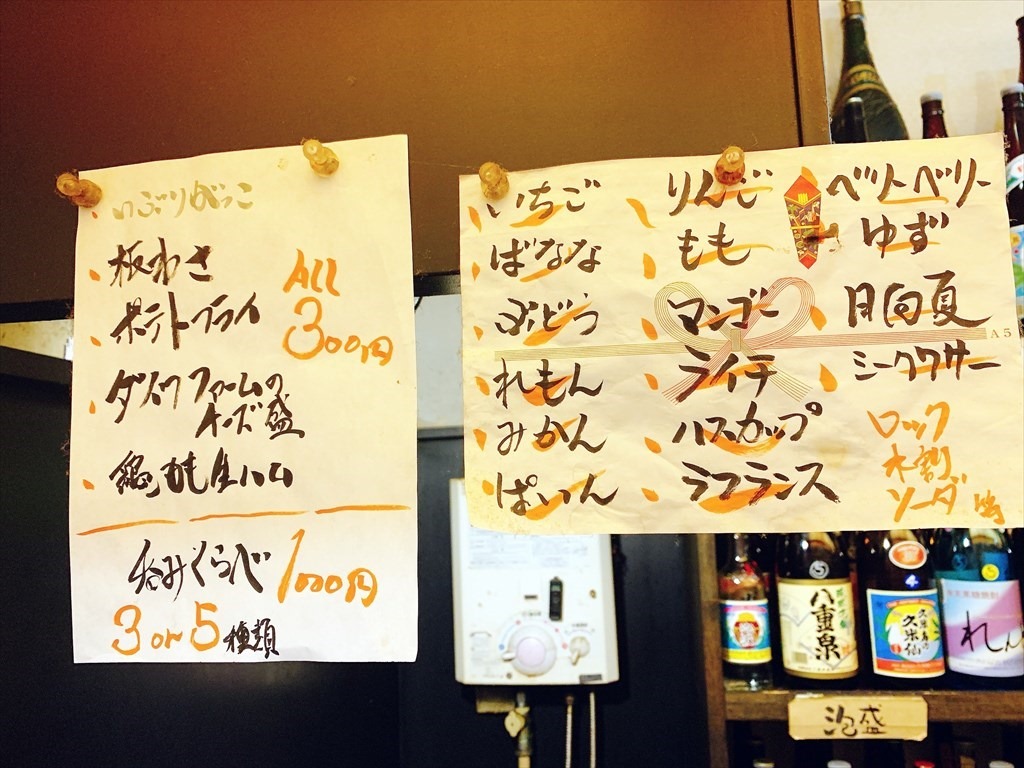 いぶりがっこ
板わさ
ポテトフライ
ALL
300円
ダイワファームの
チーズ盛
鶏もも生ハム
呑みくらべ 1000円
3 or 5 種類
いちご
ばなな
ぶどう
れもん
みかん
ぱいん
りんご
もも
マンゴー
ライチ
ハスカップ
ラフランス
ベリーベリー
ゆず
日向夏
シークワサー
ロック
水割
ソーダ割
A5
八重泉
久米仙
れん
泡盛